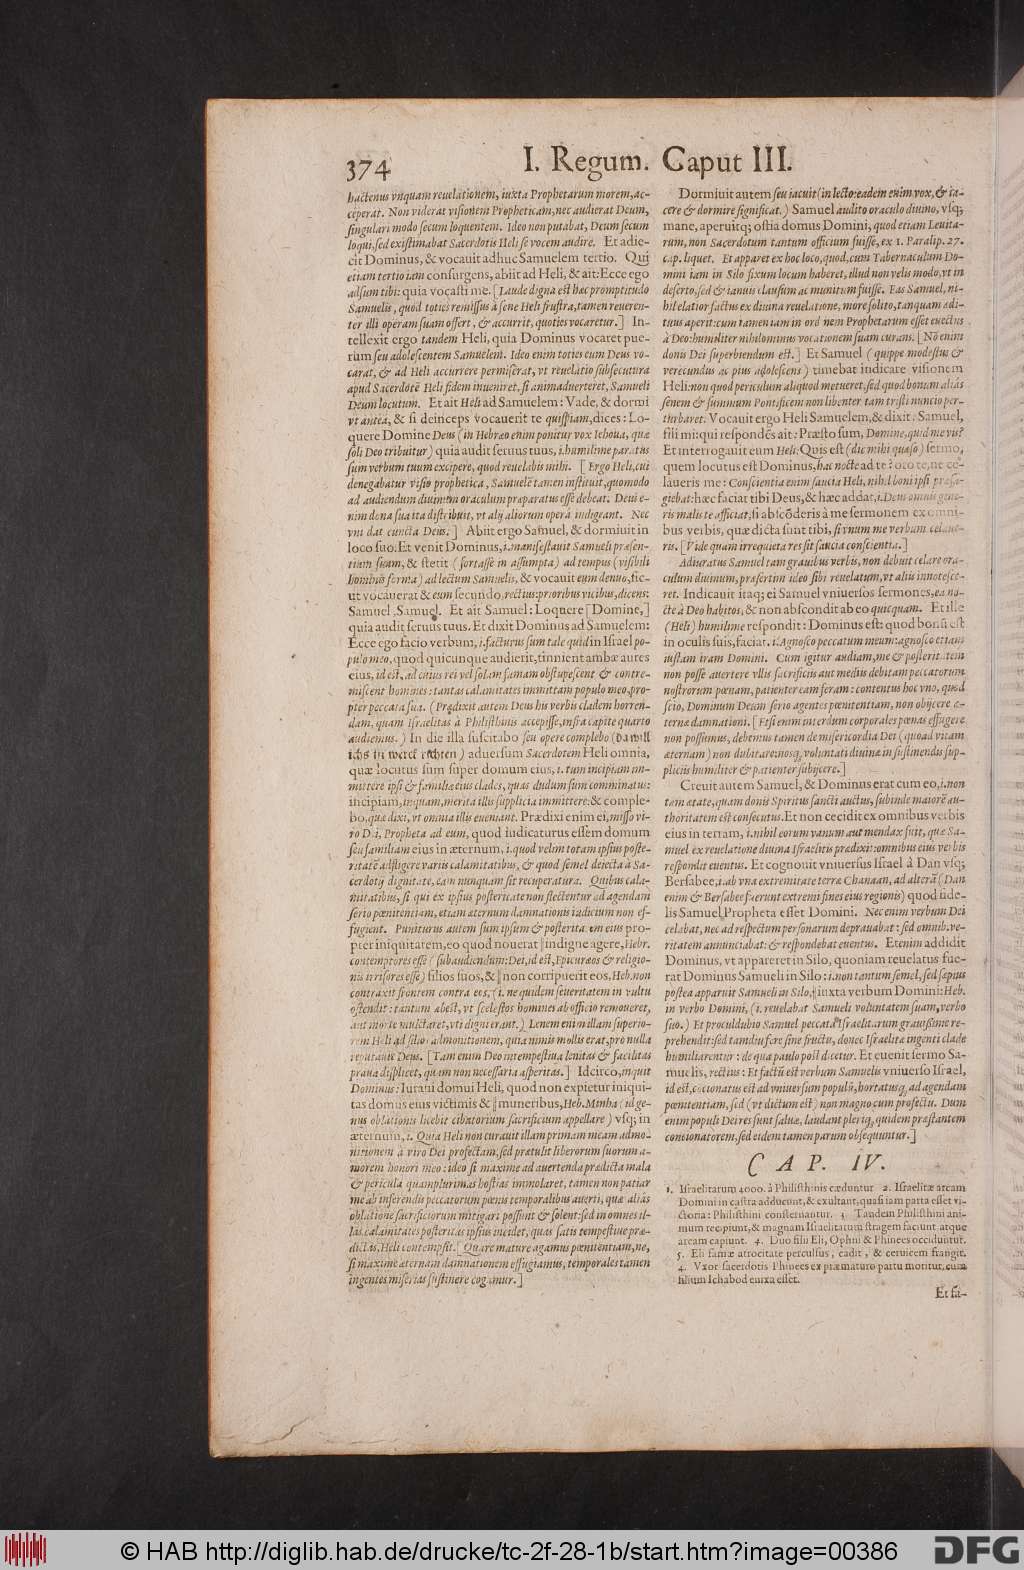 374
I. Regum. Caput III.
hactenus vnquam reuelationem, iuxta Prophetarum morem, ac-
ceperat. Non viderat visionem Propheticam, nec audierat Deum,
singulari modo secum loquentem. Ideo non putabat, Deum secum
loqui, sed existimabat Sacerdotis Heli se vocem audire. Et adie-
cit Dominus, & vocauit adhuc Samuelem tertio. Qui
etiam tertio iam consurgens, abiit ad Heli, & ait: Ecce ego
adsum tibi: quia vocasti me. [Laude digna est hæc promptitudo
Samuelis, quod toties remissus à sene Heli frustra, tamen reueren-
ter illi operam suam offert, & accurrit, quoties vocaretur.] In-
tellexit ergo tandem Heli, quia Dominus vocaret pue-
rum seu adolescentem Samuelem. Ideo enim toties eum Deus vo-
carat, & ad Heli accurrere permiserat, vt reuelatio subsecutura
apud Sacerdotē Heli fidem inueniret, si animaduerteret, Samueli
Deum locutum. Et ait Heli ad Samuelem: Vade, & dormi
vt antea, & si deinceps vocauerit te quispiam, dices: Lo-
quere Domine Deus (in Hebræo enim ponitur vox Iehoua, quæ
soli Deo tribuitur) quia audit seruus tuus, i. humilime paratus
sum verbum tuum excipere, quod reuelabis mihi. [Ergo Heli, cui
denegabatur visio prophetica, Samuelē tamen instituit, quomodo
ad audiendum diuinum oraculum præparatus esse debeat. Deus e-
nim dona sua ita distribuit, vt alij aliorum operâ indigeant. Nec
vni dat cuncta Deus.] Abiit ergo Samuel, & dormiuit in
loco suo. Et venit Dominus, i. manifestauit Samueli præsen-
tiam suam, & stetit (fortasse in assumpta) ad tempus (visibili
hominis forma) ad lectum Samuelis, & vocauit eum denuo, sic-
ut vocauerat & eum secundo, rectius: prioribus vicibus, dicens:
Samuel, Samuel. Et ait Samuel: Loquere [Domine,]
quia audit seruus tuus. Et dixit Dominus ad Samuelem:
Ecce ego facio verbum, i. facturus sum tale quid in Israel po-
pulo meo, quod quicunque audierit, tinnient ambæ aures
eius, id est, ad cuius rei vel solam famam obstupescent & contre-
miscent homines: tantas calamitates immittam populo meo, pro-
pter peccata sua. (Prædixit autem Deus his verbis cladem horren-
dam, quam Israelitas à Philisthinis accepisse, infra capite quarto
audiemus.) In die illa suscitabo seu opere complebo (da will
ichs in werck richten) aduersum Sacerdotem Heli omnia,
quæ locutus sum super domum eius, i. tum incipiam im-
mittere ipsi & familiæ eius clades, quas dudum sum comminatus:
incipiam, inquam, merita illis supplicia immittere: & comple-
bo, quæ dixi, vt omnia illis eueniant. Prædixi enim ei, misso vi-
ro Dei, Propheta ad eum, quod iudicaturus essem domum
seu familiam eius in æternum, i. quod velim totam ipsius poste-
ritatē adfligere variis calamitatibus, & quod semel deiecta à Sa-
cerdotij dignitate, eam nunquam sit recuperatura. Quibus cala-
mitatibus, si qui ex ipsius posteritate non flectentur ad agendam
serio pœnitentiam, etiam æternum damnationis iudicium non ef-
fugient. Puniturus autem sum ipsum & posteritatem eius pro-
pter iniquitatem, eo quod nouerat ‖ indigne agere, Hebr.
contemptores esse (subaudiendum: Dei, id est, Epicuræos & religio-
nis irrisores esse) filios suos, & ‖ non corripuerit eos, Heb. non
contraxit frontem contra eos, (i. ne quidem seueritatem in vultu
ostendit: tantum abest, vt scelestos homines ab officio remoueret,
aut morte mulctaret, vti digni erant.) Lenem enim illam superio-
rem Heli ad filios admonitionem, quia nimis mollis erat, pro nulla
reputauit Deus. [Tam enim Deo intempestiua lenitas & facilitas
praua displicet, quam non necessaria asperitas.] Idcirco, inquit
Dominus: Iuraui domui Heli, quod non expietur iniqui-
tas domus eius victimis & ‖ muneribus, Heb. Minha (id ge-
nus oblationis licebit cibatorium sacrificium appellare) vsq; in
æternum, i. Quia Heli non curauit illam primam meam admo-
nitionem à viro Dei profectam, sed prætulit liberorum suorum a-
morem honori meo: ideo si maxime ad auertenda prædicta mala
& pericula quamplurimas hostias immolaret, tamen non patiar
me ab inferendis peccatorum pœnis temporalibus auerti, quæ aliàs
oblatione sacrificiorum mitigari possunt & solent: sed in omnes il-
las calamitates posteritas ipsius incidet, quas satis tempestiue præ-
dictas, Heli contempsit. [Quare mature agamus pœnitentiam, ne,
si maxime æternam damnationem effugiamus, temporales tamen
ingentes miserias sustinere cogamur.]
Dormiuit autem seu iacuit (in lecto: eadem enim vox, & ia-
cere & dormire significat.) Samuel audito oraculo diuino, vsq;
mane, aperuitq; ostia domus Domini, quod etiam Leuita-
rum, non Sacerdotum tantum officium fuisse, ex 1. Paralip. 27.
cap. liquet. Et apparet ex hoc loco, quod, cum Tabernaculum Do-
mini iam in Silo fixum locum haberet, illud non velis modo, vt in
deserto, sed & ianuis clausum ac munitum fuisse. Eas Samuel, ni-
hil elatior factus ex diuina reuelatione, more solito, tanquam ædi-
tuus aperit: cum tamen iam in ordinem Prophetarum esset euectus
à Deo: humiliter nihilominus vocationem suam curans. [Nō enim
donis Dei superbiendum est.] Et Samuel (quippe modestus &
verecundus ac pius adolescens) timebat indicare visionem
Heli: non quod periculum aliquod metueret, sed quod bonum aliàs
senem & summum Pontificem non libenter tam tristi nuncio per-
turbaret. Vocauit ergo Heli Samuelem, & dixit: Samuel,
fili mi: qui respondēs ait: Præsto sum, Domine, quid me vis?
Et interrogauit eum Heli: Quis est (dic mihi quæso) sermo,
quem locutus est Dominus, hac nocte ad te? oro te, ne ce-
laueris me: Conscientia enim saucia Heli, nihil boni ipsi præsa-
giebat: hæc faciat tibi Deus, & hæc addat, i. Deus omnis gene-
ris malis te afficiat, si abscōderis à me sermonem ex omni-
bus verbis, quæ dicta sunt tibi, si vnum me verbum celaue-
ris. [Vide quam irrequieta res sit saucia conscientia.]
Adiuratus Samuel tam grauibus verbis, non debuit celare ora-
culum diuinum, præsertim ideo sibi reuelatum, vt aliis innotesce-
ret. Indicauit itaq; ei Samuel vniuersos sermones, ea no-
cte à Deo habitos, & non abscondit ab eo quicquam. Et ille
(Heli) humilime respondit: Dominus est: quod bonū est
in oculis suis, faciat. i. Agnosco peccatum meum: agnosco etiam
iustam iram Domini. Cum igitur audiam, me & posteritatem
non posse auertere vllis sacrificiis aut mediis debitam peccatorum
nostrorum pœnam, patienter eam feram: contentus hoc vno, quod
scio, Dominum Deum serio agentes pœnitentiam, non obijcere æ-
ternæ damnationi. [Etsi enim interdum corporales pœnas effugere
non possumus, debemus tamen de misericordia Dei (quoad vitam
æternam) non dubitare: nosq; voluntati diuinæ in sustinendis sup-
pliciis humiliter & patienter subijcere.]
Creuit autem Samuel, & Dominus erat cum eo, i. non
tam ætate, quam donis Spiritus sancti auctus, subinde maiorē au-
thoritatem est consecutus. Et non cecidit ex omnibus verbis
eius in terram, i. nihil eorum vanum aut mendax fuit, quæ Sa-
muel ex reuelatione diuina Israelitis prædixit: omnibus eius verbis
respondit euentus. Et cognouit vniuersus Israel à Dan vsq;
Bersabee, i. ab vna extremitate terræ Chanaan, ad alterā (Dan
enim & Bersabee fuerunt extremi fines eius regionis) quod fide-
lis Samuel Propheta esset Domini. Nec enim verbum Dei
celabat, nec ad respectum personarum deprauabat: sed omnib. ve-
ritatem annunciabat: & respondebat euentus. Et enim addidit
Dominus, vt appareret in Silo, quoniam reuelatus fue-
rat Dominus Samueli in Silo: i. non tantum semel, sed sæpius
postea apparuit Samueli in Silo, ‖ iuxta verbum Domini: Heb.
in verbo Domini, (i. reuelabat Samueli voluntatem suam, verbo
suo.) Et proculdubio Samuel peccata Israelitarum grauissime re-
prehendit: sed tamdiu fere sine fructu, donec Israelitæ ingenti clade
humiliarentur: de qua paulo post dicetur. Et euenit sermo Sa-
muelis, rectius: Et factū est verbum Samuelis vniuerso Israel,
id est, concionatus est ad vniuersum populū, hortatusq; ad agendam
pœnitentiam, sed (vt dictum est) non magno cum profectu. Dum
enim populi Dei res sunt saluæ, laudant pleriq; quidem præstantem
concionatorem, sed eidem tamen parum obsequuntur.]
CAP. IV.
1. Israelitarum 4000. à Philisthinis cæduntur. 2. Israelitæ arcam
Domini in castra adducunt, & exultant, quasi iam parta esset vi-
ctoria: Philisthini consternantur. 3. Tandem Philisthini ani-
mum recipiunt, & magnam Israelitarum stragem faciunt atque
arcam capiunt. 4. Duo filii Eli, Ophni & Phinees occiduntur.
5. Eli famæ atrocitate perculsus, cadit, & ceruicem frangit.
4. Vxor sacerdotis Phinees ex præmaturo partu moritur, cum
filium Ichabod enixa esset.
Et fa-
© HAB http://diglib.hab.de/drucke/tc-2f-28-1b/start.htm?image=00386
DFG